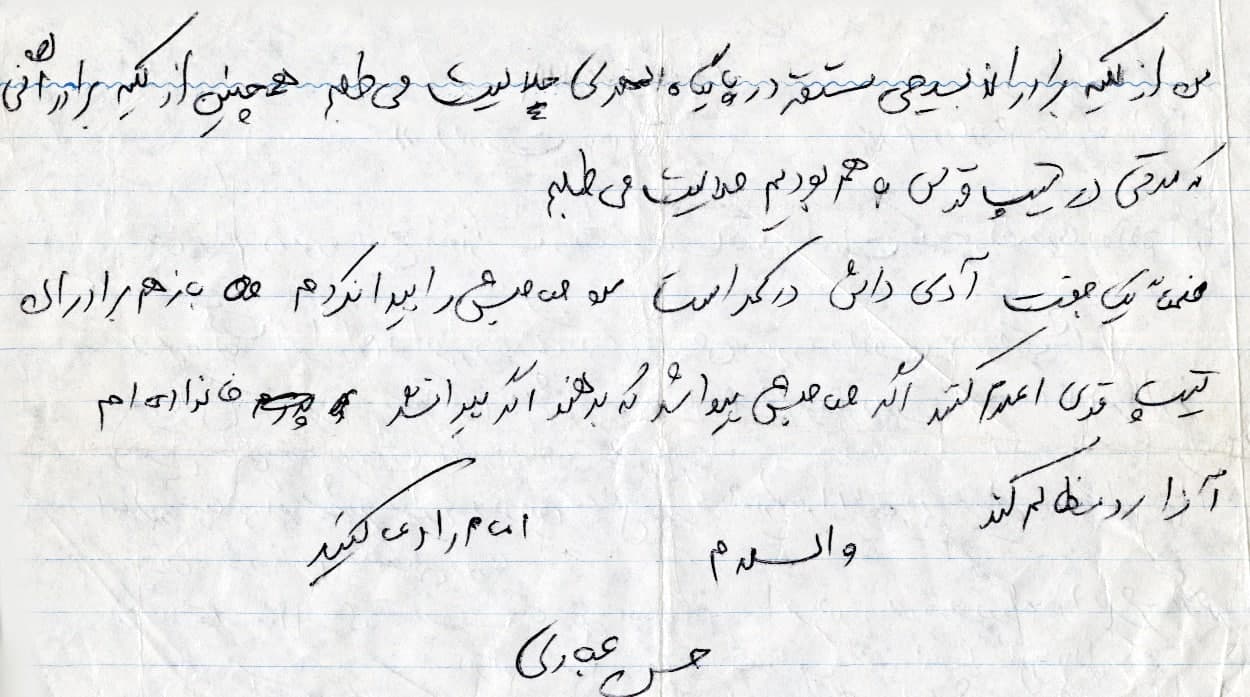 من از کلیه برادران بسیجی مستقر در پایگاه المهدی حلالیت می طلبم همچنین از کلیه برادرانی
که مدتی در تیپ قدس با هم بودیم حلالیت می طلبم
ضمناً یک جفت در کمد است من صاحبش را پیدا نکردم باز هم برادران
تیپ قدس اعلام کنند اگر صاحبش پیدا شد که بدهند اگر پیدا نشد خانواده ام
آنرا رد مظالم کند
والسلام
امام را دعا کنید
حسن